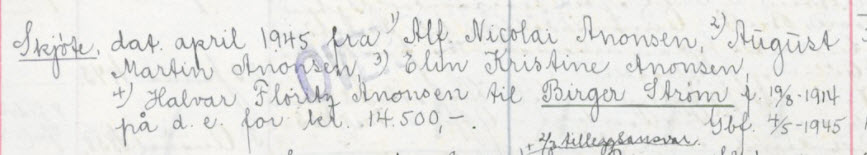 Skjøte, dat. april 1945 fra 1) Alf. Nicolai Anonsen, 2) August
Martin Anonsen, 3) Elin Kristine Anonsen,
4) Halvar Floritz Anonsen til Birger Strøm f. 19/8-1914
på d. e. for kr. 14.500,-. Gbf. 4/5-1945